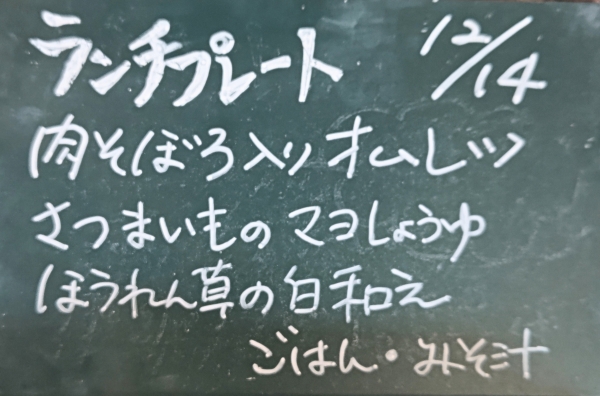 ランチプレート 12/14
肉そぼろ入りオムレツ
さつまいものマヨしょうゆ
ほうれん草の白和え
ごはん・みそ汁